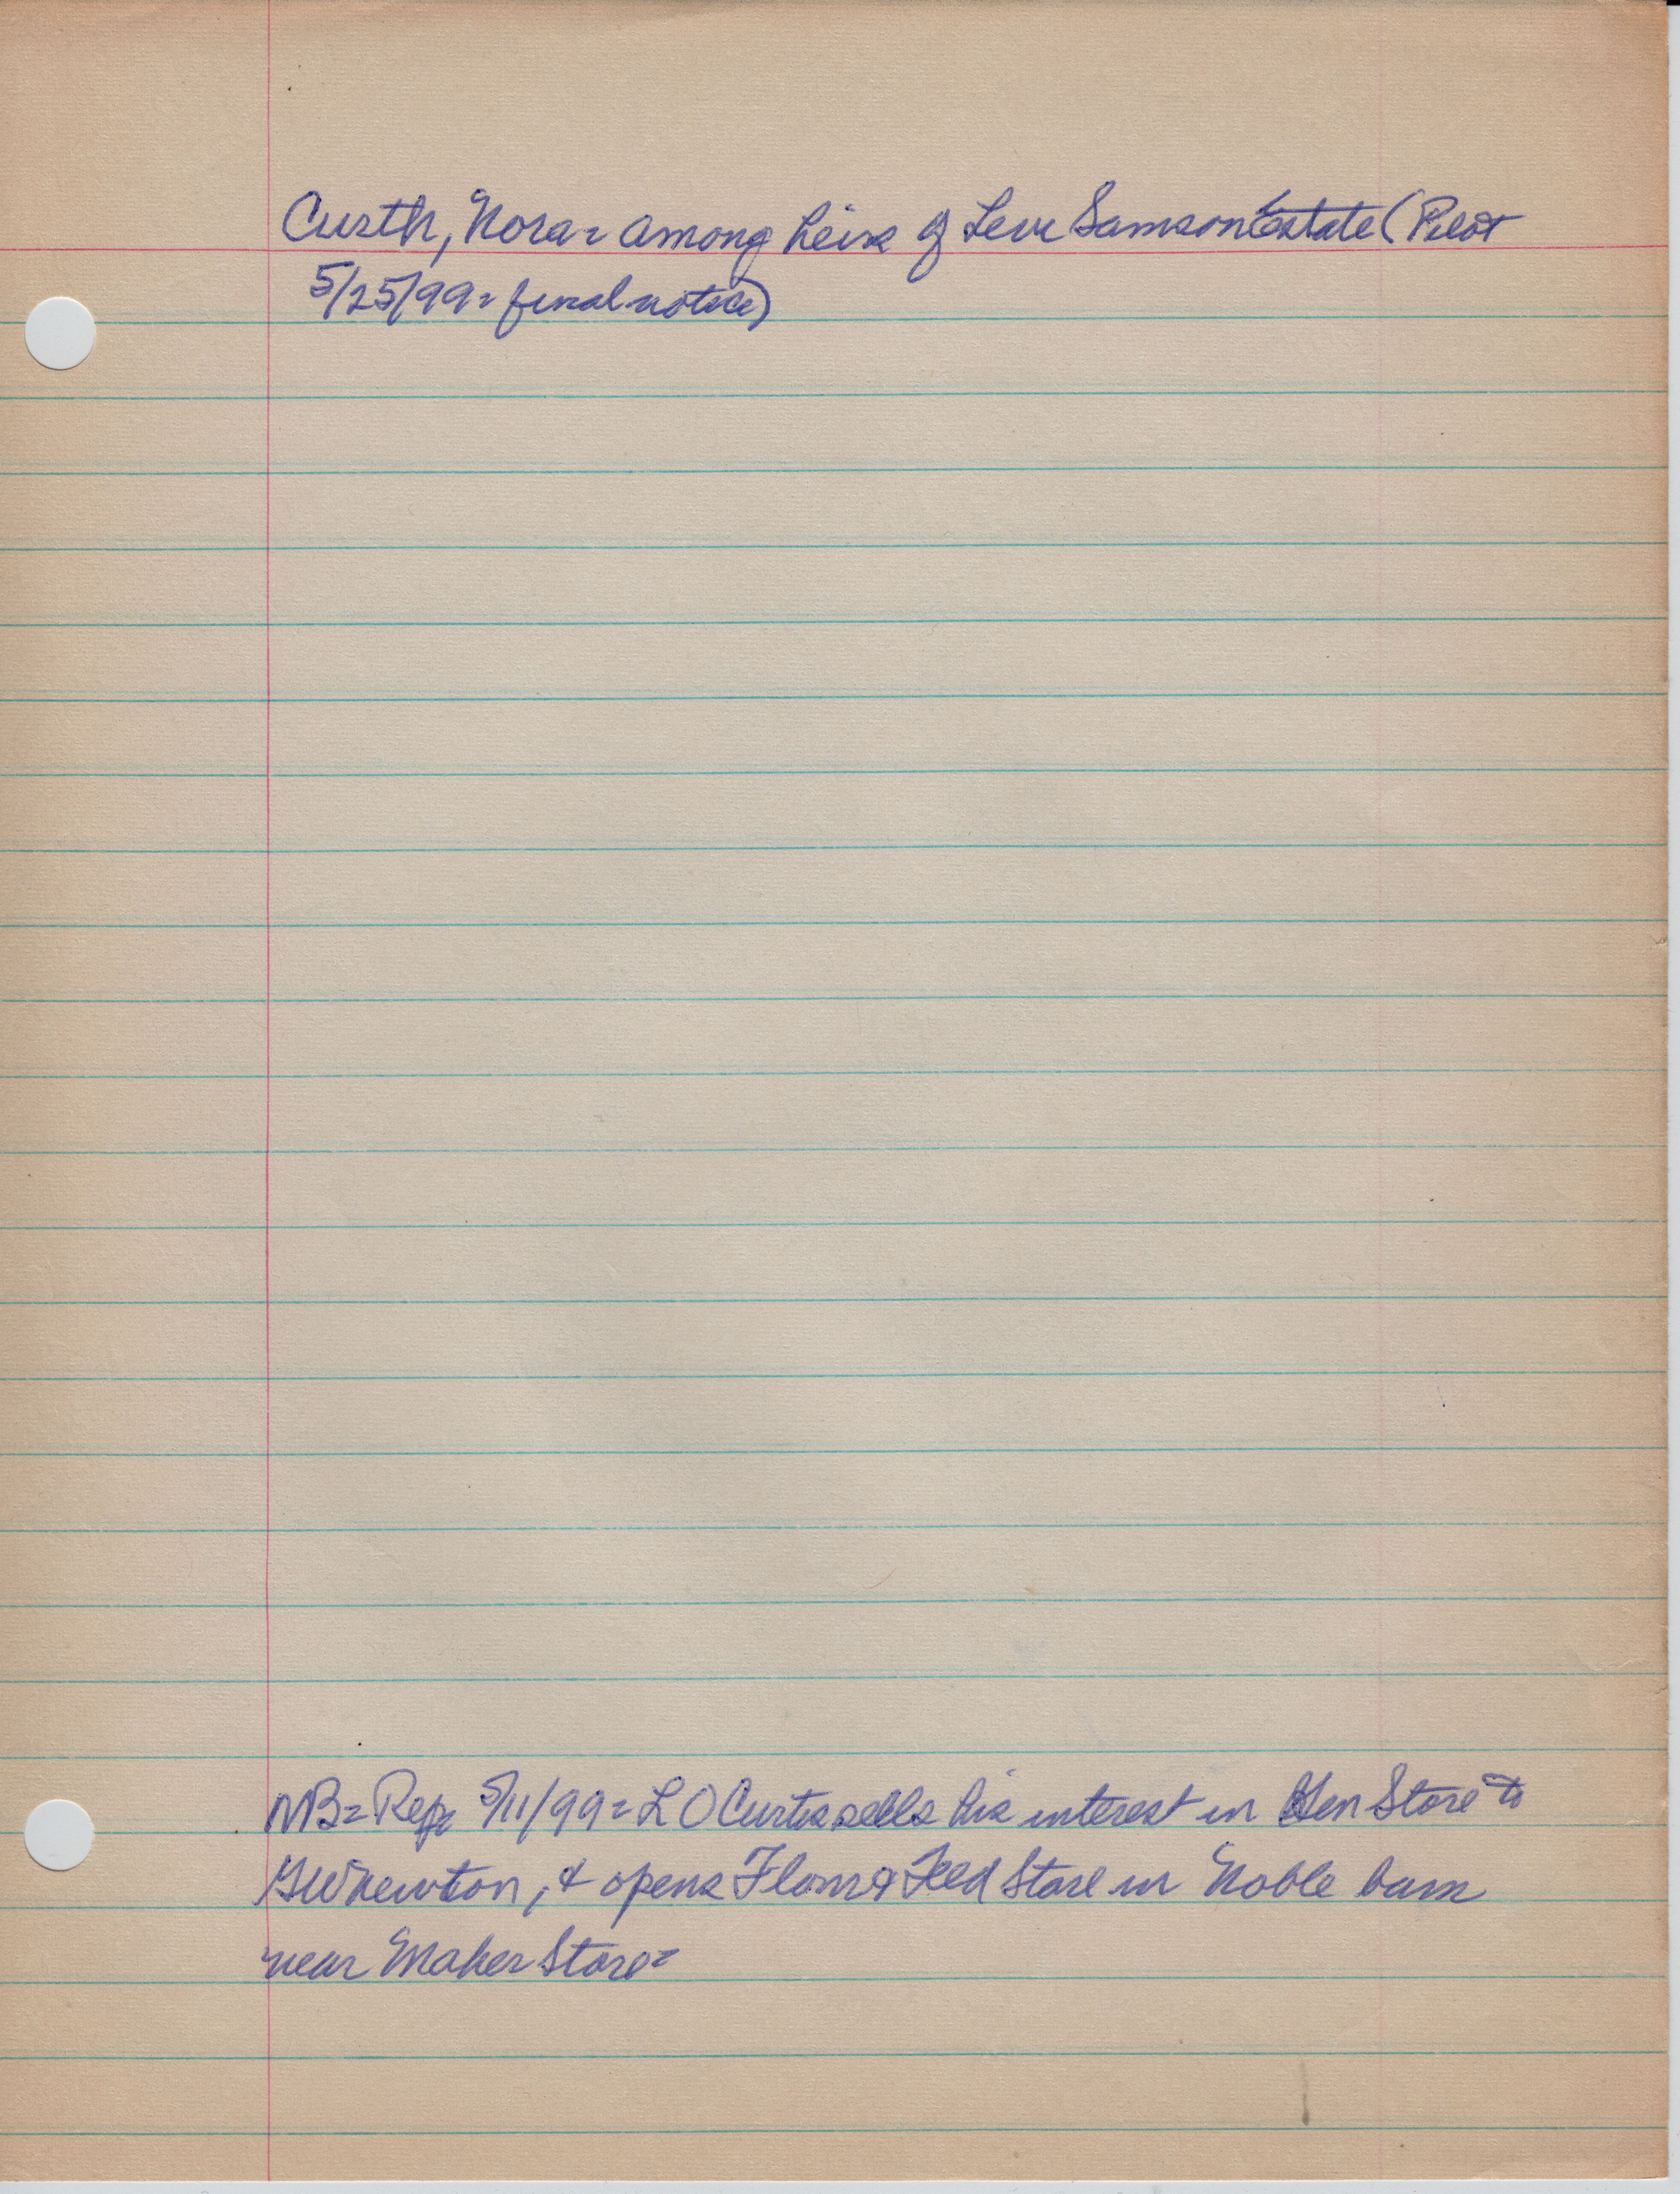 Curth, Nora = among heirs of Levi Samson Estate (Pilot
5/25/99 = final notice)
NB = Rep 5/11/99 = L O Curtis sells his interest in Gen Store to
GW Newton, & opens Flour & Feed Store in Noble barn
near Maker Store =